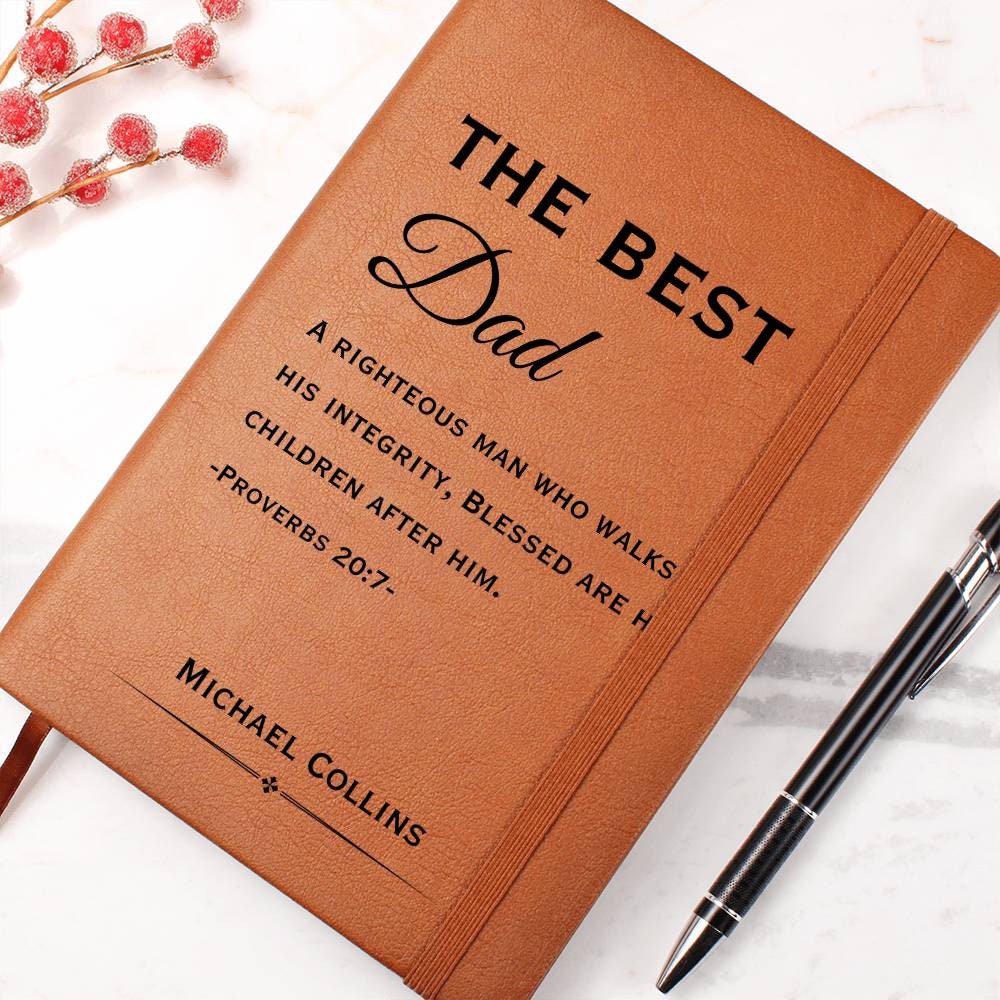 THE BEST
Dad
A RIGHTEOUS MAN WHO WALKS
HIS INTEGRITY, BLESSED ARE H
CHILDREN AFTER HIM.
-PROVERBS 20:7-
MICHAEL COLLINS